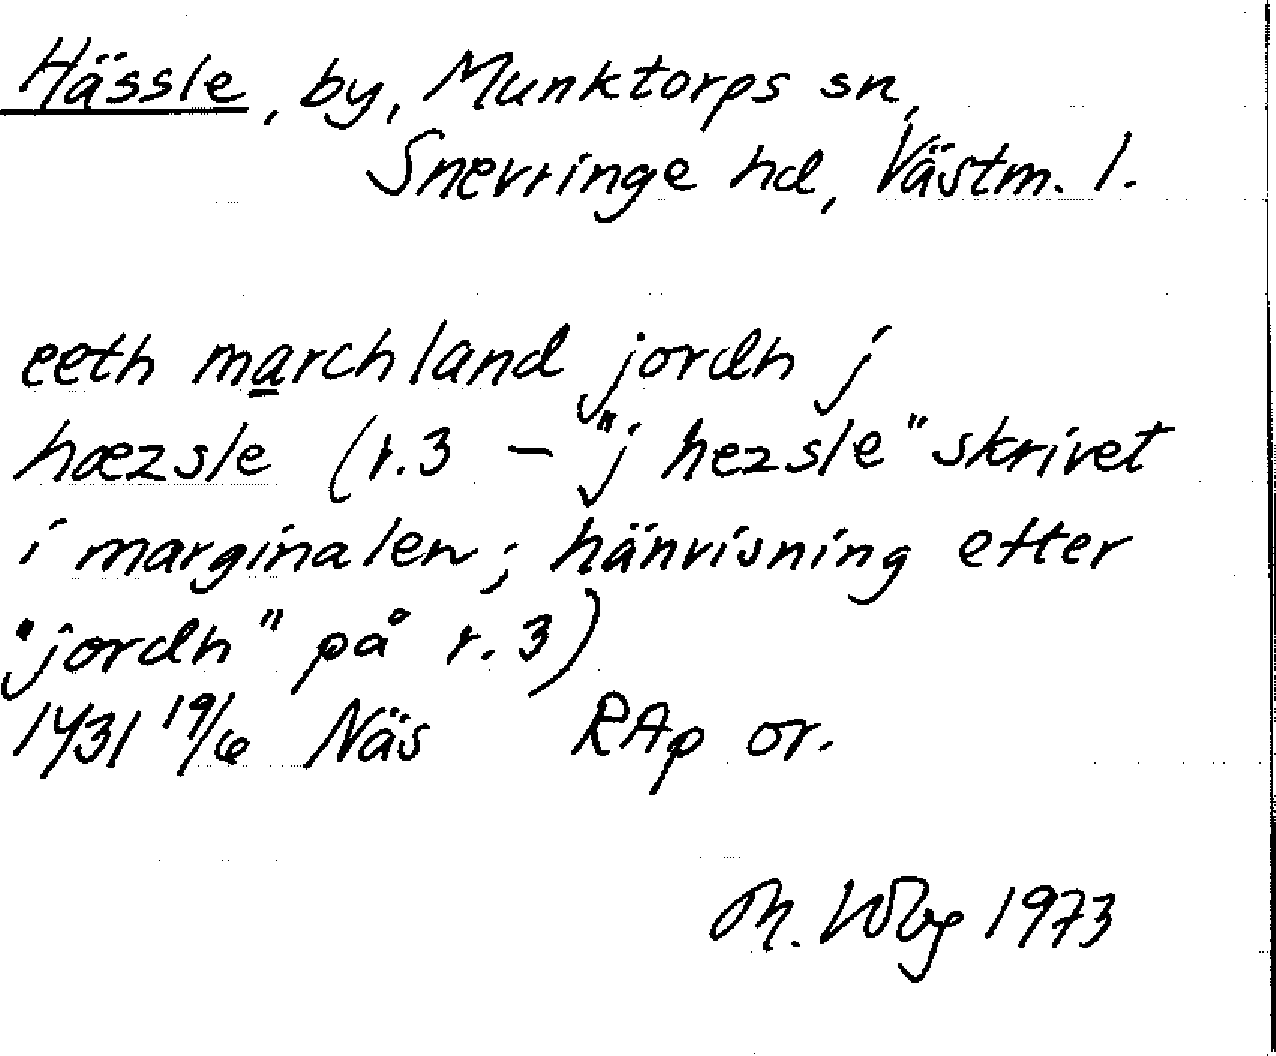 Hässle, by, Munktorps sn,
Snevringe hd, Västm. l.
eeth marchland jordh j
hæzsle (r.3 – "j hezsle" skrivet
i marginalen; hänvisning efter
"jordh" på r.3)
1431 19/6 Näs RAp or.
M. 1973